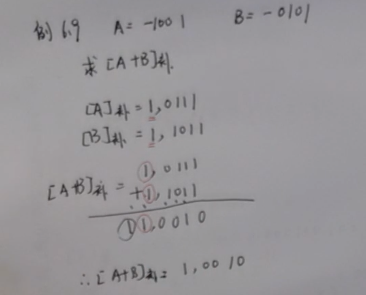 例6.9 A = -1001 B = -0101
求[A+B]补.
[A]补 = 1,0111
[B]补 = 1,1011
1,0111
[A+B]补 = +1,1011
11,0010
∴[A+B]补 = 1,0010